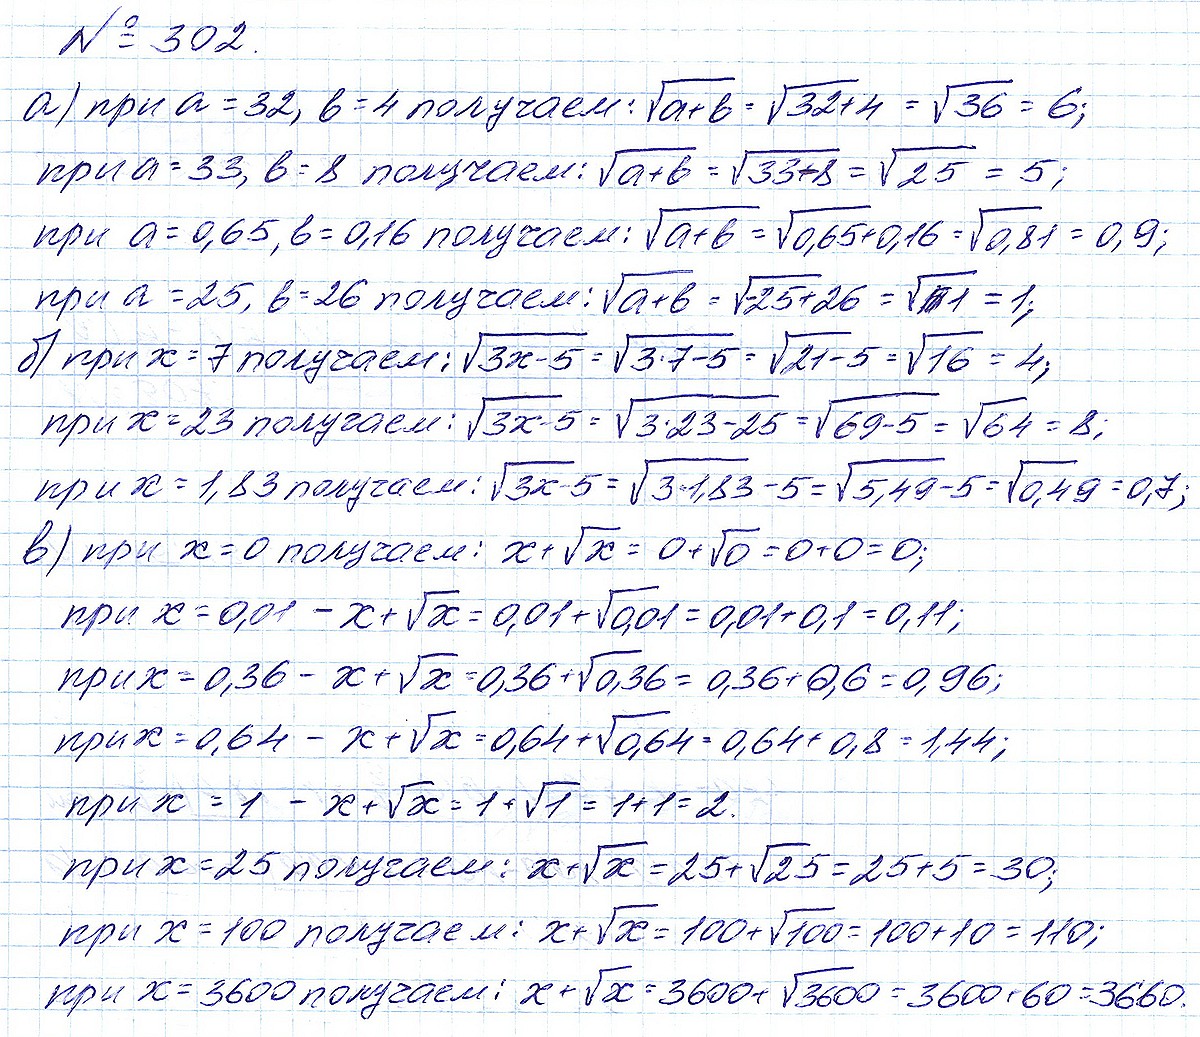 № 302.
а) при a = 32, b = 4 получаем: √a+b = √32+4 = √36 = 6;
при a = 33, b = 8 получаем: √a+b = √33+8 = √25 = 5;
при a = 0,65, b = 0,16 получаем: √a+b = √0,65+0,16 = √0,81 = 0,9;
при a = 25, b = 26 получаем: √a+b = √-25+26 = √1 = 1;
б) при x = 7 получаем: √3x-5 = √3·7-5 = √21-5 = √16 = 4;
при x = 23 получаем: √3x-5 = √3·23-25 = √69-5 = √64 = 8;
при x = 1,83 получаем: √3x-5 = √3·1,83-5 = √5,49-5 = √0,49 = 0,7;
в) при x = 0 получаем: x+√x = 0+√0 = 0+0 = 0;
при x = 0,01 - x+√x = 0,01+√0,01 = 0,01+0,1 = 0,11;
при x = 0,36 - x+√x = 0,36+√0,36 = 0,36+0,6 = 0,96;
при x = 0,64 - x+√x = 0,64+√0,64 = 0,64+0,8 = 1,44;
при x = 1 - x+√x = 1+√1 = 1+1 = 2.
при x = 25 получаем: x+√x = 25+√25 = 25+5 = 30;
при x = 100 получаем: x+√x = 100+√100 = 100+10 = 110;
при x = 3600 получаем: x+√x = 3600+√3600 = 3600+60 = 3660.